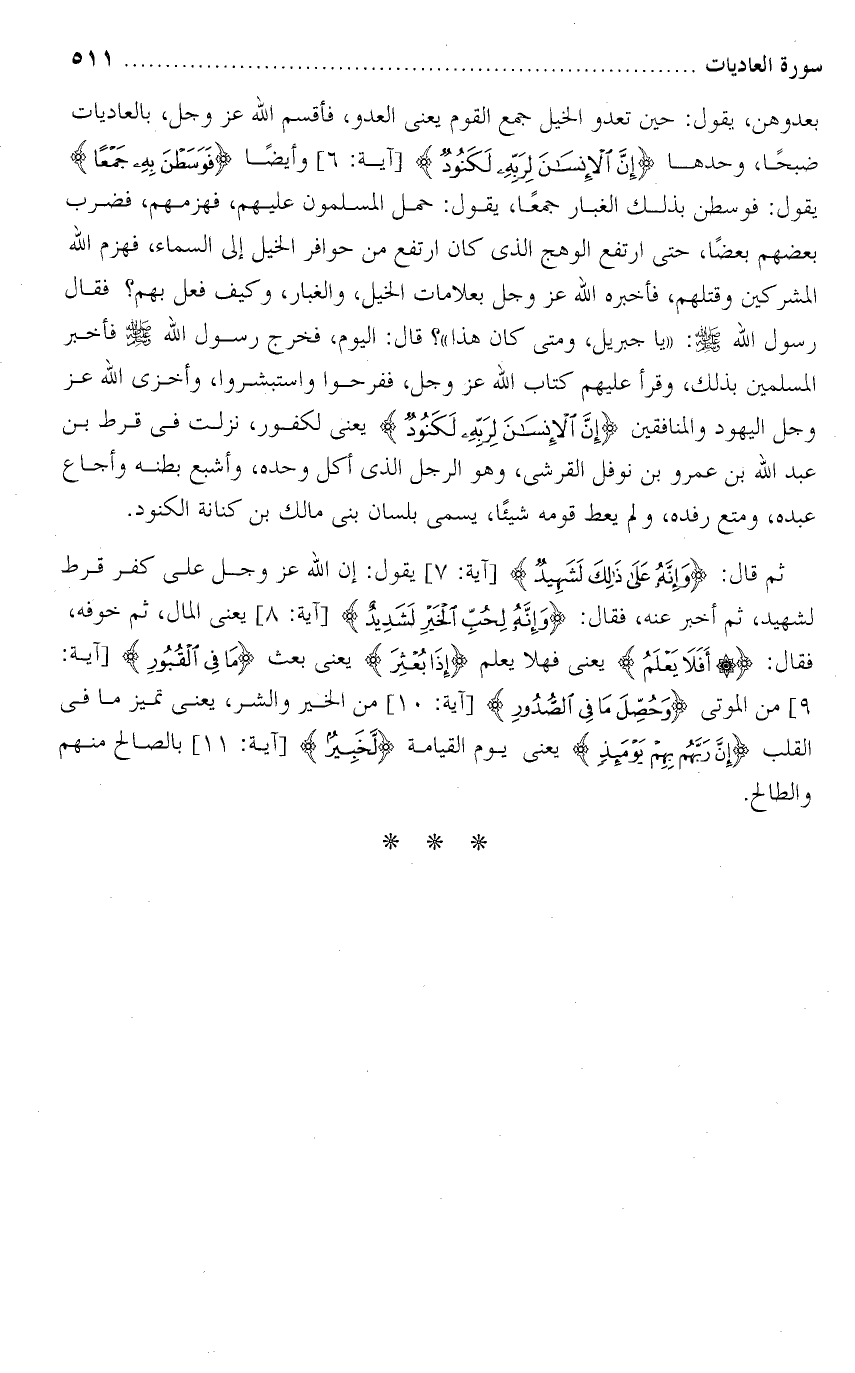 سورة العاديات ........................................................................ ٥١١
بعدوهن، يقول: حين تعدو الخيل جمع القوم يعنى العدو، فأقسم الله عز وجل، بالعاديات
ضبحًا، وحدها ﴿إِنَّ ٱلْإِنسَـٰنَ لِرَبِّهِۦ لَكَنُودٌ﴾ [آية: ٦] وأيضًا ﴿فَوَسَطْنَ بِهِۦ جَمْعًا﴾
يقول: فوسطن بذلك الغبار جمعًا، يقول: حمل المسلمون عليهم، فهزمهم، فضرب
بعضهم بعضًا، حتى ارتفع الوهج الذى كان ارتفع من حوافر الخيل إلى السماء، فهزم الله
المشركين وقتلهم، فأخبره الله عز وجل بعلامات الخيل، والغبار، وكيف فعل بهم؟ فقال
رسول الله ﷺ: «يا جبريل، ومتى كان هذا»؟ قال: اليوم، فخرج رسول الله ﷺ فأخبر
المسلمين بذلك، وقرأ عليهم كتاب الله عز وجل، ففرحوا واستبشروا، وأخزى الله عز
وجل اليهود والمنافقين ﴿إِنَّ ٱلْإِنسَـٰنَ لِرَبِّهِۦ لَكَنُودٌ﴾ يعنى لكفور، نزلت فى قرط بن
عبد الله بن عمرو بن نوفل القرشى، وهو الرجل الذى أكل وحده، وأشبع بطنه وأجاع
عبده، ومتع رفده، ولم يعط قومه شيئًا، يسمى بلسان بنى مالك بن كنانة الكنود.
ثم قال: ﴿وَإِنَّهُۥ عَلَىٰ ذَٰلِكَ لَشَهِيدٌ﴾ [آية: ٧] يقول: إن الله عز وجل على كفر قرط
لشهيد، ثم أخبر عنه، فقال: ﴿وَإِنَّهُۥ لِحُبِّ ٱلْخَيْرِ لَشَدِيدٌ﴾ [آية: ٨] يعنى المال، ثم خوفه،
فقال: ﴿۞ أَفَلَا يَعْلَمُ﴾ يعنى فهلا يعلم ﴿إِذَا بُعْثِرَ﴾ يعنى بعث ﴿مَا فِى ٱلْقُبُورِ﴾ [آية:
٩] من الموتى ﴿وَحُصِّلَ مَا فِى ٱلصُّدُورِ﴾ [آية: ١٠] من الخير والشر، يعنى تميز ما فى
القلب ﴿إِنَّ رَبَّهُم بِهِمْ يَوْمَئِذٍ﴾ يعنى يوم القيامة ﴿لَّخَبِيرٌۢ﴾ [آية: ١١] بالصالح منهم
والطالح.
* * *